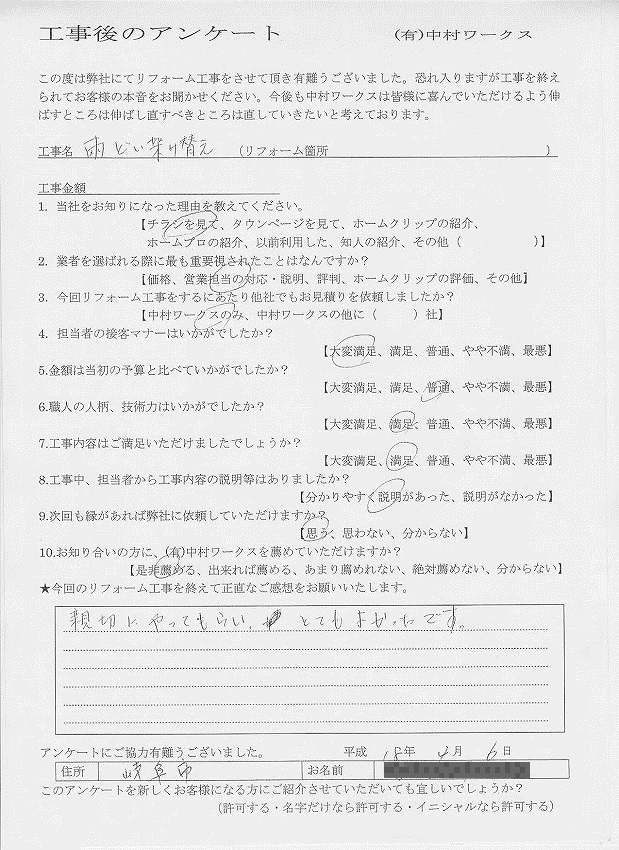 工事後のアンケート　(有)中村ワークス
この度は弊社にてリフォーム工事をさせて頂き有難うございました。恐れ入りますが工事を終え
られてお客様の本音をお聞かせください。今後も中村ワークスは皆様に喜んでいただけるよう伸
ばすところは伸ばし直すべきところは直していきたいと考えております。
工事名　雨どい架け替え　(リフォーム箇所　)
工事金額
1. 当社をお知りになった理由を教えてください。
【チラシを見て、タウンページを見て、ホームクリップの紹介、
ホームプロの紹介、以前利用した、知人の紹介、その他（　）】
2. 業者を選ばれる際に最も重要視されたことはなんですか？
【価格、営業担当の対応・説明、評判、ホームクリップの評価、その他】
3. 今回リフォーム工事をするにあたり他社でもお見積りを依頼しましたか？
【中村ワークスのみ、中村ワークスの他に（　）社】
4. 担当者の接客マナーはいかがでしたか？
【大変満足、満足、普通、やや不満、最悪】
5.金額は当初の予算と比べていかがでしたか？
【大変満足、満足、普通、やや不満、最悪】
6.職人の人柄、技術力はいかがでしたか？
【大変満足、満足、普通、やや不満、最悪】
7.工事内容はご満足いただけましたでしょうか？
【大変満足、満足、普通、やや不満、最悪】
8.工事中、担当者から工事内容の説明等はありましたか？
【分かりやすく説明があった、説明がなかった】
9.次回も縁があれば弊社に依頼していただけますか？
【思う、思わない、分からない】
10.お知り合いの方に、(有)中村ワークスを薦めていただけますか？
【是非薦める、出来れば薦める、あまり薦めれない、絶対薦めない、分からない】
★今回のリフォーム工事を終えて正直なご感想をお願いいたします。
親切にやってもらい、とてもよかったです。
アンケートにご協力有難うございました。　平成 18年 4月 6日
住所　岐阜市　お名前
このアンケートを新しくお客様になる方にご紹介させていただいても宜しいでしょうか？
（許可する・名字だけなら許可する・イニシャルなら許可する）